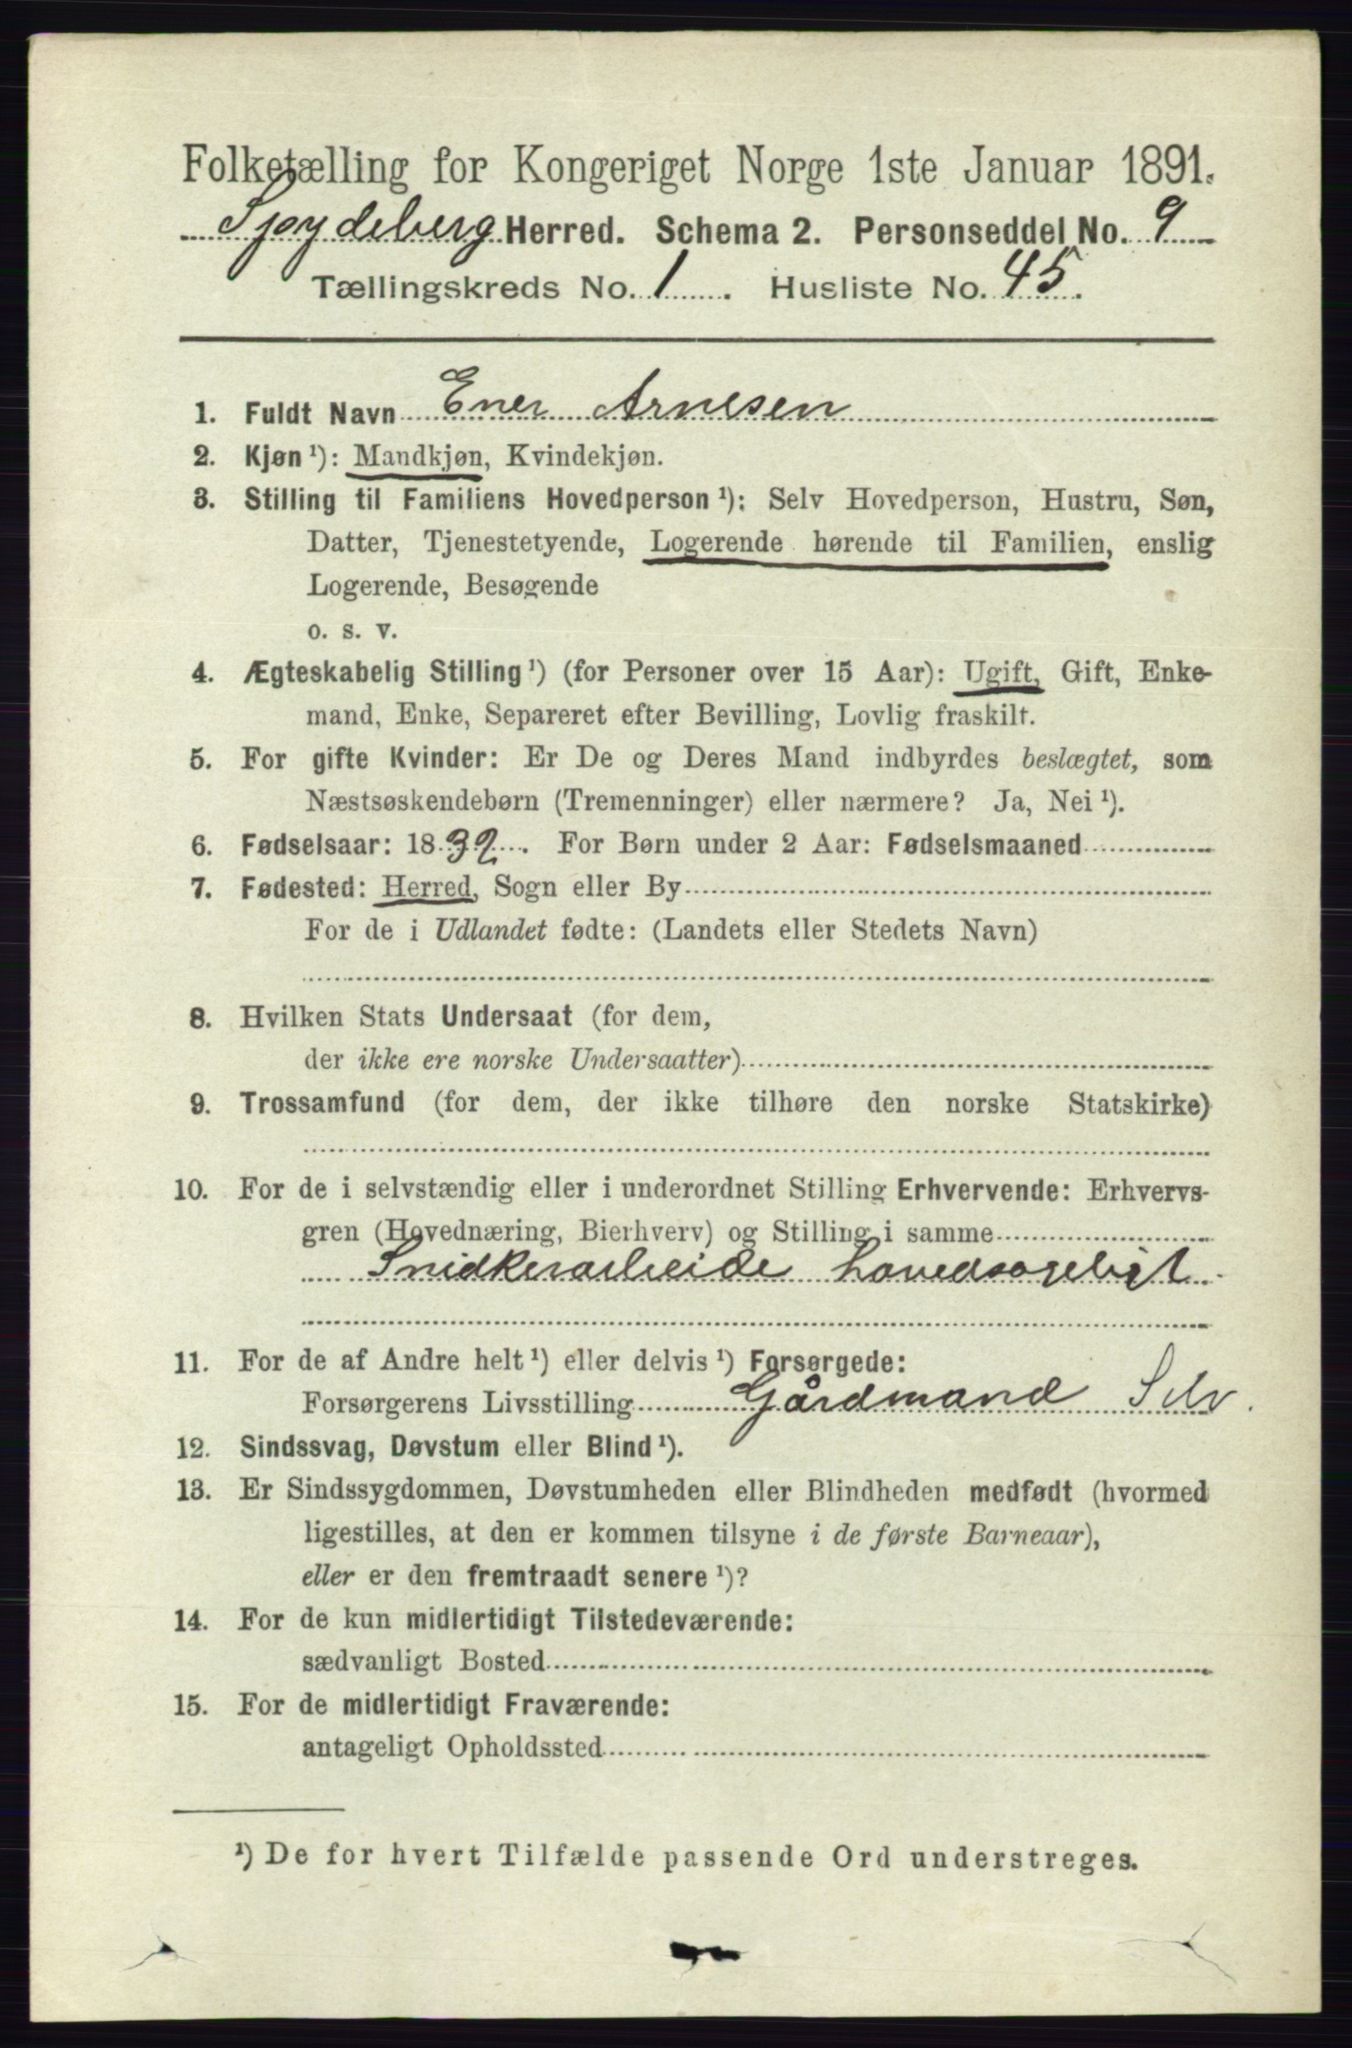 Folketælling for Kongeriget Norge 1ste Januar 1891.
Spydeberg Herred. Schema 2. Personseddel No. 9
Tællingskreds No. 1. Husliste No. 45.
1. Fuldt Navn Ener Arnesen
2. Kjøn ¹): Mandkjøn, Kvindekjøn.
3. Stilling til Familiens Hovedperson ¹): Selv Hovedperson, Hustru, Søn,
Datter, Tjenestetyende, Logerende hørende til Familien, enslig
Logerende, Besøgende
o. s. v.
4. Ægteskabelig Stilling ¹) (for Personer over 15 Aar): Ugift, Gift, Enke-
mand, Enke, Separeret efter Bevilling, Lovlig fraskilt.
5. For gifte Kvinder: Er De og Deres Mand indbyrdes beslægtet, som
Næstsøskendebørn (Tremenninger) eller nærmere? Ja, Nei ¹).
6. Fødselsaar: 1832. For Børn under 2 Aar: Fødselsmaaned
7. Fødested: Herred, Sogn eller By
For de i Udlandet fødte: (Landets eller Stedets Navn)
8. Hvilken Stats Undersaat (for dem,
der ikke ere norske Undersaatter)
9. Trossamfund (for dem, der ikke tilhøre den norske Statskirke)
10. For de i selvstændig eller i underordnet Stilling Erhvervende: Erhvervs-
gren (Hovednæring, Bierhverv) og Stilling i samme
Snidkerarbeide hovedsageligt
11. For de af Andre helt ¹) eller delvis ¹) Forsørgede:
Forsørgerens Livsstilling Gårdmand Selv.
12. Sindssvag, Døvstum eller Blind ¹).
13. Er Sindssygdommen, Døvstumheden eller Blindheden medfødt (hvormed
ligestilles, at den er kommen tilsyne i de første Barneaar),
eller er den fremtraadt senere ¹)?
14. For de kun midlertidigt Tilstedeværende:
sædvanligt Bosted
15. For de midlertidigt Fraværende:
antageligt Opholdssted
¹) De for hvert Tilfælde passende Ord understreges.